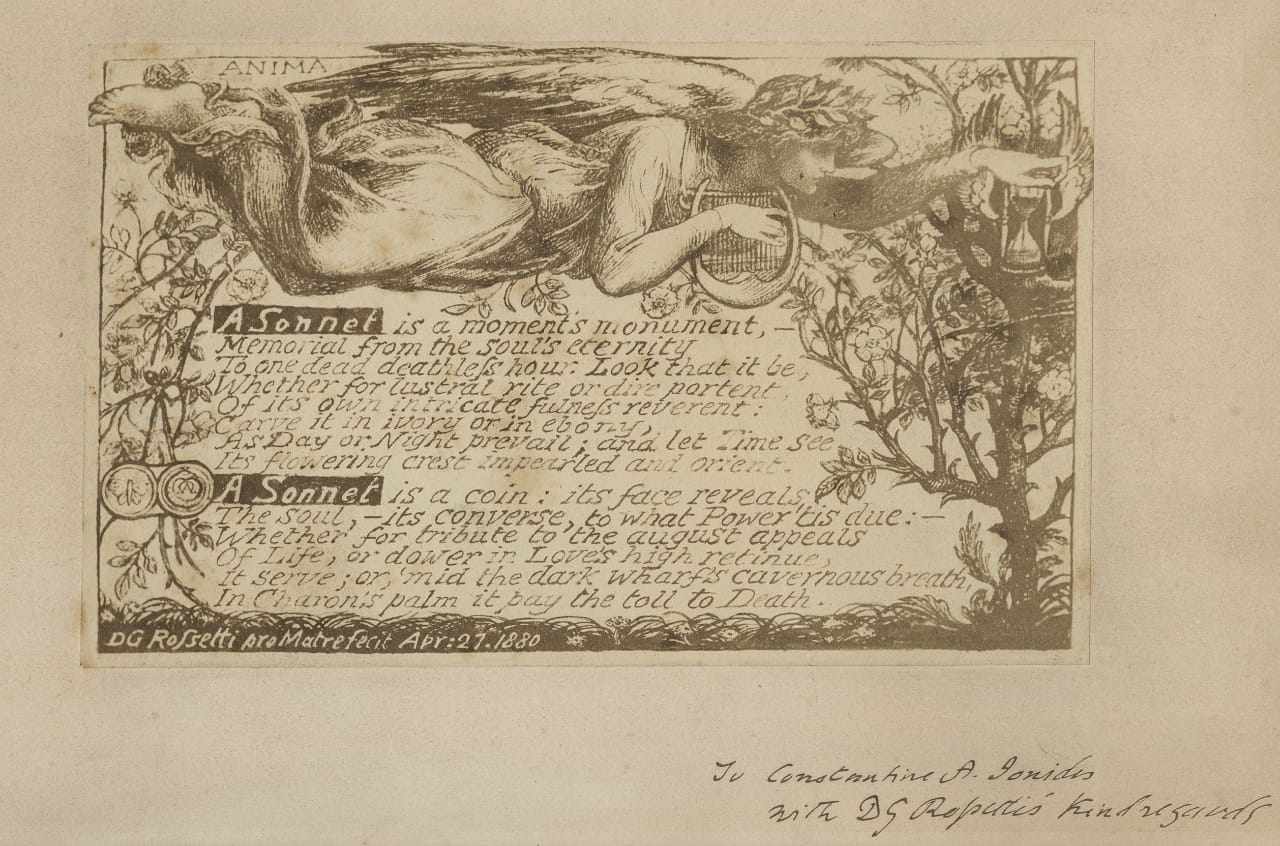 ANIMA
A Sonnet is a moment's monument,—
Memorial from the soul's eternity
To one dead deathleſs hour. Look that it be,
Whether for lustral rite or dire portent,
Of its own intricate fulneſs reverent:
Carve it in ivory or in ebony,
As Day or Night prevail; and let Time see
Its flowering crest impearled and orient.
A Sonnet is a coin: its face reveals
The soul,—its converse, to what Power 'tis due:—
Whether for tribute to the august appeals
Of Life, or dower in Love's high retinue,
It serve; or, 'mid the dark wharf's cavernous breath,
In Charon's palm it pay the toll to Death.
DG Roſsetti pro Matre fecit Apr: 27. 1880
To Constantine A. Ionides
with DG Roſsetti's kind regards